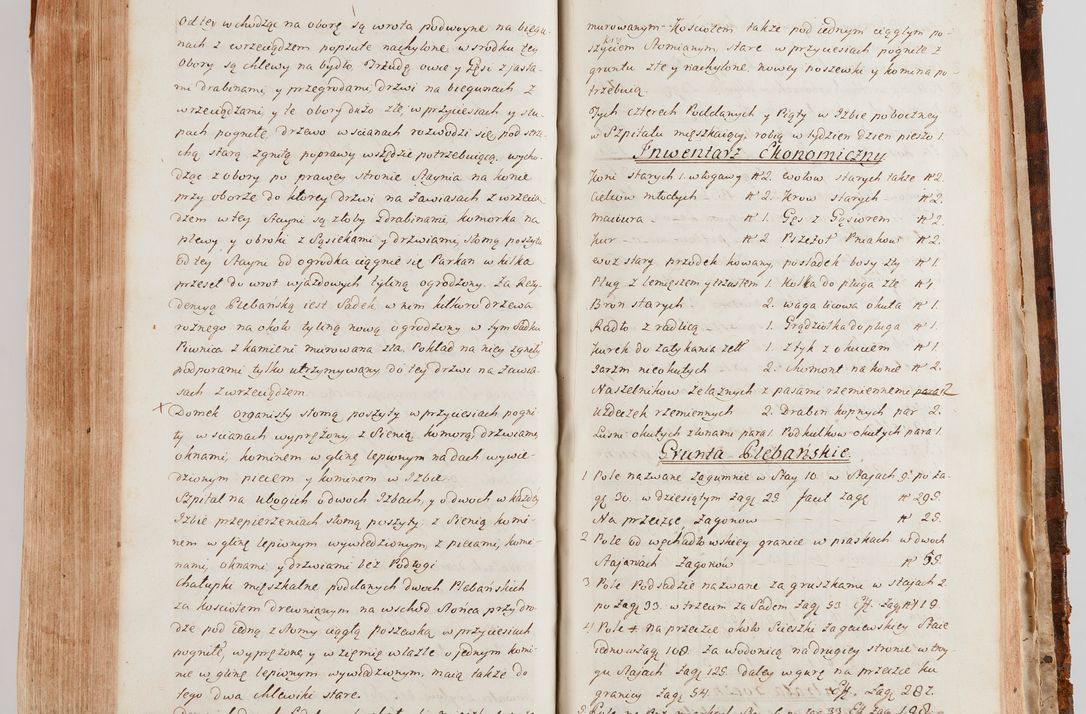 Od tey wchodząc na oborę są wrota podwoyne na biegu-
nach z wrzeciądzem popsute nachylone w srodku tey
Obory są chlewy na bydło Trzodę owce y Gęsi z jasła-
mi drabinami y przegrodami, drzwi na biegunach z
wrzeciądzami, y te obory dużo złe, w przyciesiach y słu-
pach pogniłe, drzewo w scianach rozwodzi się, pod strze-
chą starą zgniłą poprawy wszędzie potrzebuiącą. wycho-
dząc z obory po prawey stronie Staynia na konie
przy oborze do ktorey drzwi na Zawiasach z wrzecią-
dzem w tey Stayni są złoby z drabinami, komorka na
plewy y obroki z Sąsiekami y drzwiami, słomą poszyta
Od tey Stayni od ogrodka ciągnie się Parkan w kilka
przeseł do wrot wjazdowych tyliną ogrodzony. Za Rezy-
dencyą Plebańską iest Sadek, w nim kilkoro drzewa
roznego na około tyliną nową ogrodzony w tym Sadku
Piwnica z kamieni murowana zła. Pokład na niey zgniły
podporami tylko utrzymywany, do tey drzwi na Zawia-
sach z wrzeciądzem.
Domek organisty słomą poszyty w przyciesiach pogni-
ły, w scianach wyprężony, z Sienią, komorą, drzwiami,
oknami, kominem w glinę lepionym na dach wywie-
dzionym piecem y kominem w Izbie
Szpital na ubogich o dwoch Izbach, y o dwoch w każdey
Izbie przepierzeniach słomą poszyty, z Sienią komi-
nem w glinę lepionym wywiedzionym, z piecami, komi-
nami, oknami, y drzwiami bez Podłogi
Chałupki mięszkalne poddanych dwoch Plebańskich
za kosciołem drewnianym na wschod słońca przy dro-
dze pod iedną z słomy ciągłą poszewką, w przyciesiach
pogniłe, wyprężone, y w ziemię wlazłe o jednym komi-
nie w glinę lepionym wywiedzionym, maią także do
tego dwa chlewiki stare.
murowanym Kosciołem także pod iednym ciągłym po-
szyciem słomianym, stare w przyciesiach pogniłe z
gruntu złe y nachylone, nowey poszewki y komina po-
trzebuią.
Tych czterech Poddanych y Piąty w Izbie poboczney
w Szpitalu mięszkaiący, robią w tydzien dzien pieszo 1.
Inwentarz Ekonomiczny
Koni starych 1. włogawy № 2. wołow starych także № 2.
Cielcow młodych № 2. Krow starych № 2.
maciora - № 1. Gęś z Gęsiorem - № 2.
Kur - № 2. Pszczoł Pniakow № 2.
woz stary przodek kowany, posladek bosy zły № 1.
Pług z lemięszem y trzusłem 1. Kolka do pługa złe № 1.
Bron starych 2. waga licowa okuta № 1.
Radło z radlicą 1. Grądziołka do pługa № 1.
Kurek do zatykania zełt 1. Ztyk z okuciem № 1.
Jarzm nieokutych 2. Chomont na konie № 2.
Naszelnikow żelaznych z pasami rzemiennemi para 2
Uzdeczek rzemiennych 2. Drabin kopnych par 2.
Lusni okutych z łonami para 1. Podkulkow okutych para 1.
Grunta Plebańskie.
1 Pole nazwane Zagumnie w Stay 10. w Stajach 9. po Za-
gę 30. w dziesiątym Zagę 29. facit Zagę № 299.
Na przeczce Zagonow № 25.
2 Pole od węchadłowskiey granice w piaskach w dwoch
Stajaniach Zagonow № 59.
3 Pole Podsadzie nazwane za gruszkami w stajach 2
po Zagę 93. w trzecim za Sadem Zagę 33 Eff. Zag № 219.
4 Pole na przeczce około Scieszki Zagaiewskiey Staie
iedno Zagę 108. Za włodonicą na drugiey stronie w trzy-
gu Stajach Zagę 125. daley w gurę na przeczce ku
granicy Zagę 54. Eff. Zag 287.